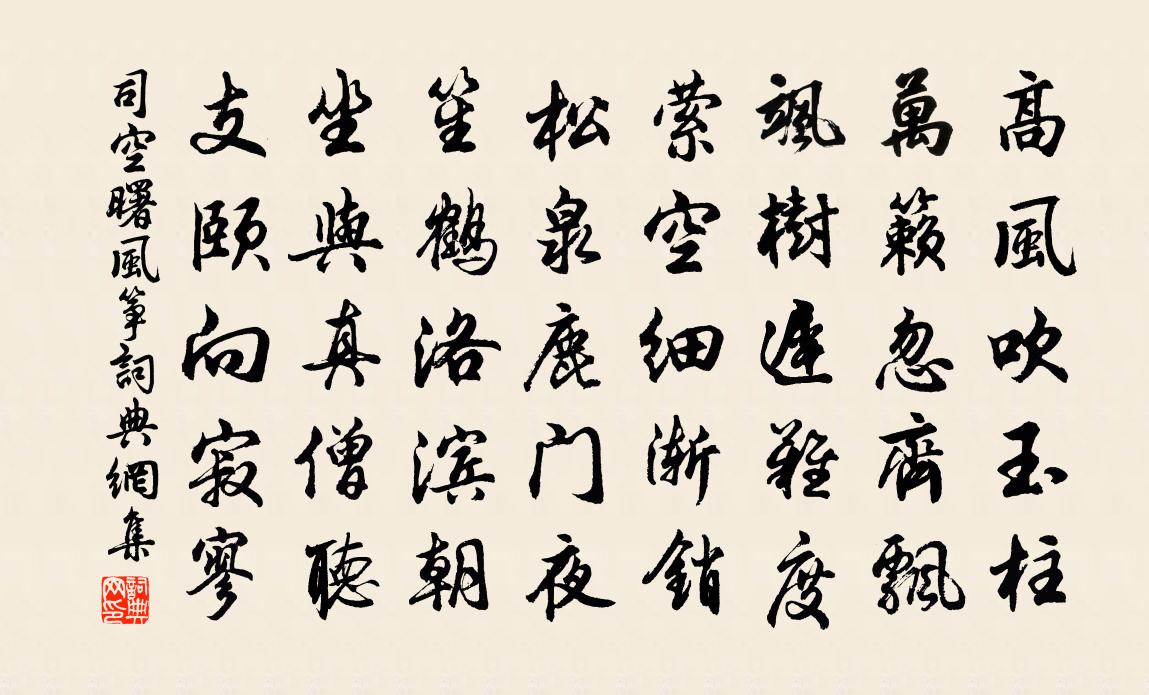 高風吹玉柱
萬籟忽齊飄
颯樹遲難度
縈空細漸銷
松泉鹿门夜
笙鶴洛滨朝
坐與真僧聽
支頤向寂寥
司空曙風箏詞典網集
詞典网印